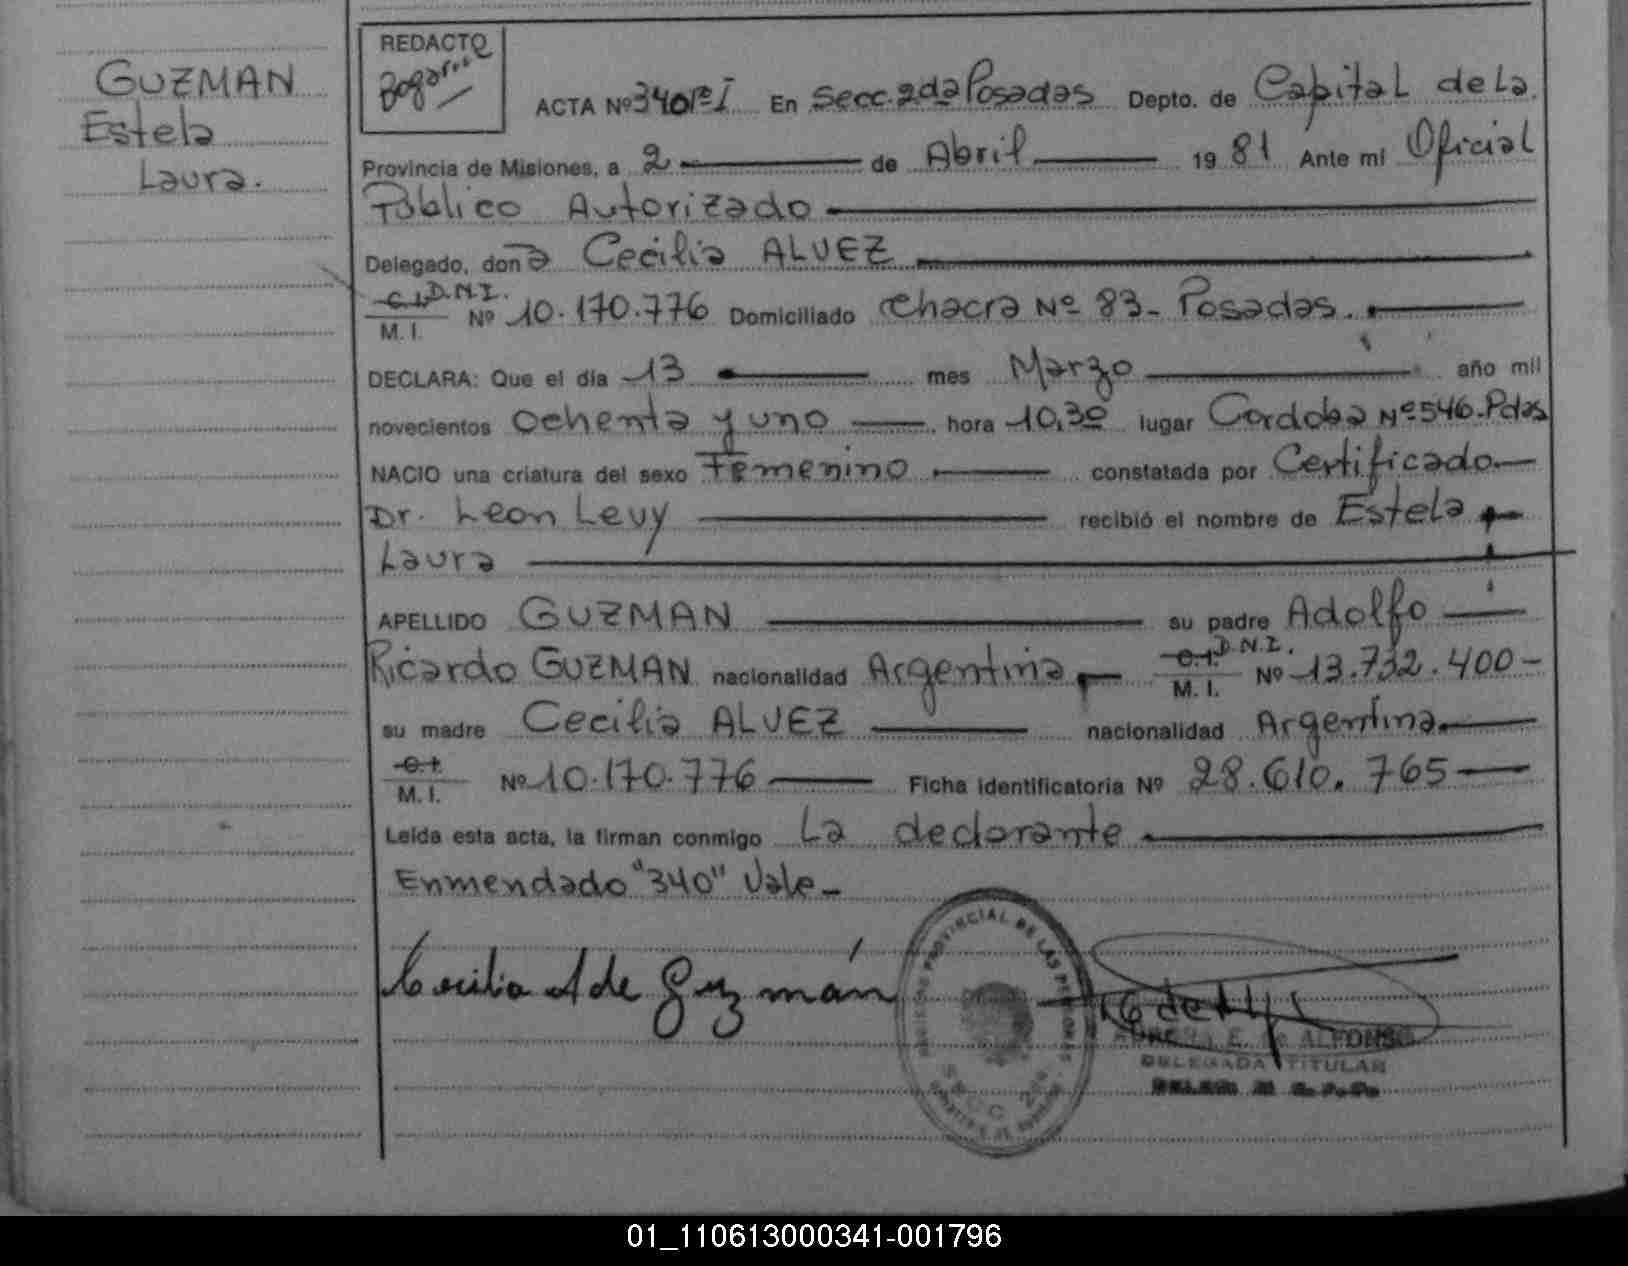 GUZMAN
Estela
Laura.
REDACTO
ACTA Nº 340 Tº I En Secc. 2da Posadas Depto. de Capital de La
Provincia de Misiones, a 2 de Abril 19 81 Ante mi Oficial
Público Autorizado
Delegado, don a Cecilia ALVEZ
C.I. D.N.I.
M. I. Nº 10.170.776 Domiciliado Chacra Nº 83 - Posadas.
DECLARA: Que el día 13 mes Marzo año mil
novecientos Ochenta y uno hora 10,30 lugar Cordoba Nº 546-Pdas
NACIO una criatura del sexo Femenino constatada por Certificado
Dr. Leon Levy recibió el nombre de Estela
Laura
APELLIDO GUZMAN su padre Adolfo
Ricardo GUZMAN nacionalidad Argentina C.I. D.N.I. M. I. Nº 13.732.400-
su madre Cecilia ALVEZ nacionalidad Argentina.
C.I.
M. I. Nº 10.170.776 Ficha identificatoria Nº 28.610.765
Leída esta acta, la firman conmigo La declarante
Enmendado "340" Vale-
Cecilia A de Guzmán
PROVINCIAL DE LAS PERSONAS
SECC. 2da
E. de ALFONSO
DELEGADA TITULAR
01_110613000341-001796